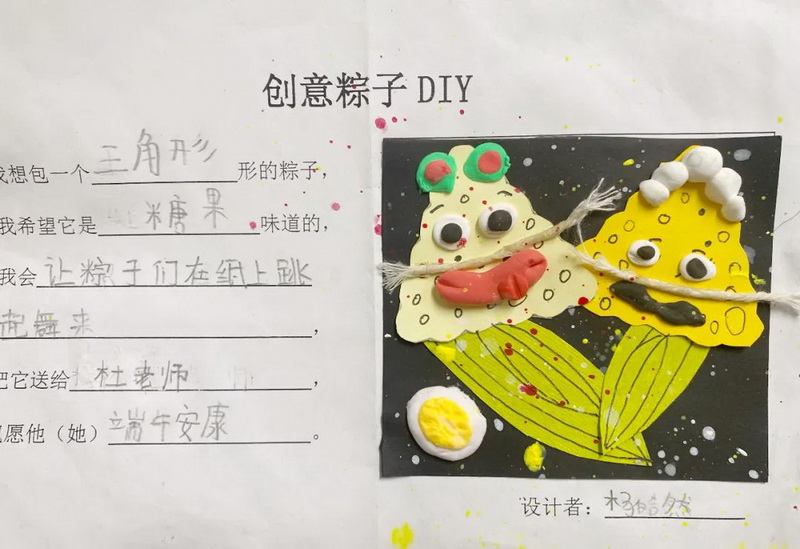 创意粽子 DIY
我想包一个三角形形的粽子，
我希望它是糖果味道的，
我会让粽子们在纸上跳
起舞来，
把它送给杜老师，
祝愿他（她）端午安康。
设计者：杨皓然